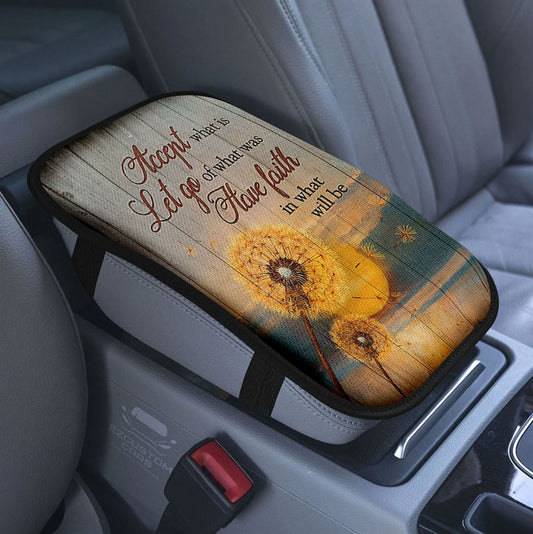 Accept what is
Let go of what was
Have faith
in what
will be
EZCUSTOM
CARS